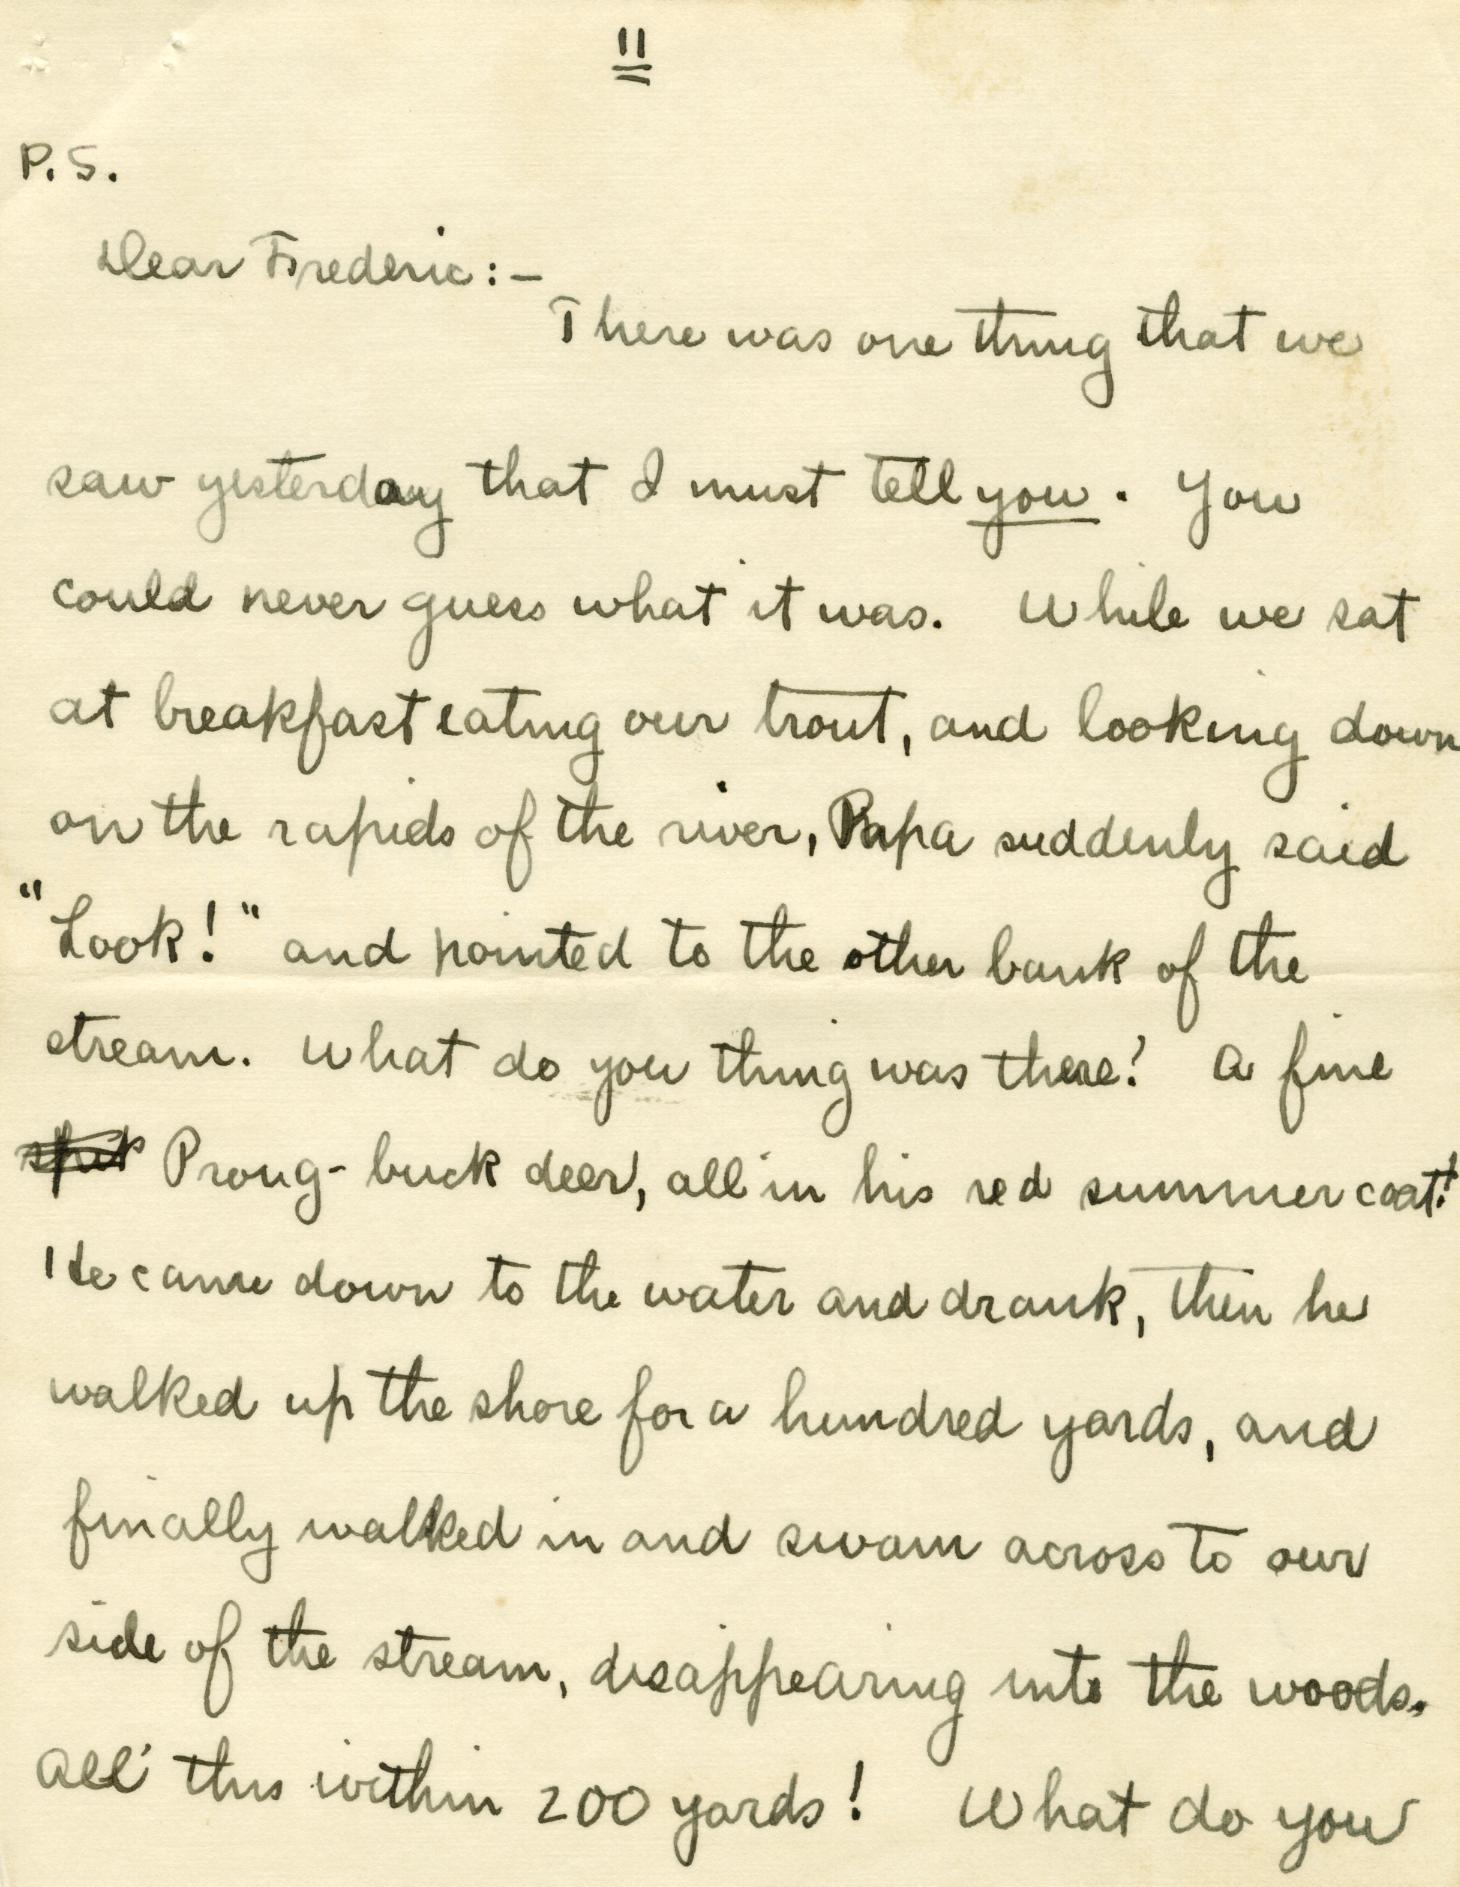 11
P.S.
Dear Frederic:—
There was one thing that we
saw yesterday that I must tell you. You
could never guess what it was. While we sat
at breakfast eating our trout, and looking down
on the rapids of the river, Papa suddenly said
"Look!" and pointed to the other bank of the
stream. What do you thing was there? A fine
Prong-buck deer, all in his red summer coat!
He came down to the water and drank, then he
walked up the shore for a hundred yards, and
finally walked in and swam across to our
side of the stream, disappearing into the woods.
All this within 200 yards! What do you